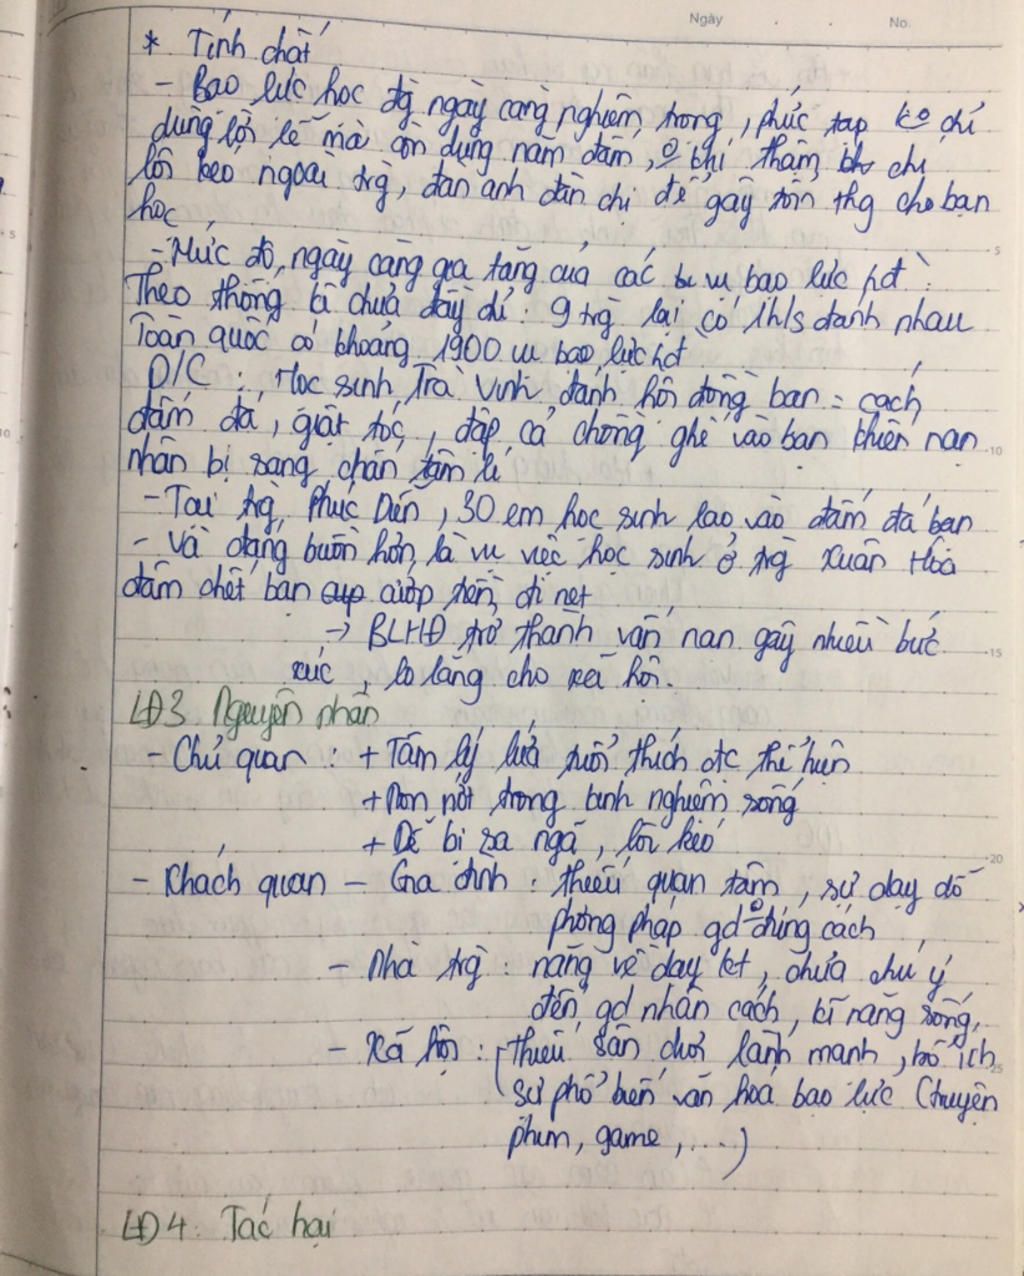 Ngày No.
* Tính chất
- Bạo lực học đg ngày càng nghiêm trọng, phức tạp ko chỉ
dùng lời lẽ mà còn dụng nắm đấm, thậm chí
lôi kéo ngoài trg, đàn anh đàn chị để gây tổn thg cho bạn
học
- Mức độ ngày càng gia tăng của các vụ bạo lực hđ:
Theo thống kê chưa đầy đủ: 9 trg lại có 1 h/s đánh nhau
Toàn quốc có khoảng 1900 vụ bạo lực hđ
D/C: Học sinh Trà Vinh đánh hội đồng bạn = cách
đấm đá, giật tóc, đập cả chồng ghế vào bạn khiến nạn
nhân bị sang chấn tâm lí
- Tại trg Phúc Diễn, 30 em học sinh lao vào đấm đá bạn
- Và đáng buồn hơn là vụ việc học sinh ở trg Xuân Hòa
đâm chết bạn cướp tiền đi net
→ BLHĐ trở thành vấn nạn gây nhiều bức
xúc, lo lắng cho xã hội.
LĐ3 Nguyên nhân
Chủ quan: + Tâm lý lứa tuổi thích đc thể hiện
+ Non nớt trong kinh nghiệm sống
+ Dễ bị sa ngã, lôi kéo
- Khách quan - Gia đình: thiếu quan tâm, sự dạy dỗ
phương pháp gd đúng cách
- Nhà trg: nặng về dạy kt, chưa chú ý
đến gd nhân cách, kĩ năng sống,
- Xã hội: thiếu sân chơi lành mạnh, bổ ích
sự phổ biến văn hóa bạo lực (truyện
phim, game, ...)
LĐ4: Tác hại